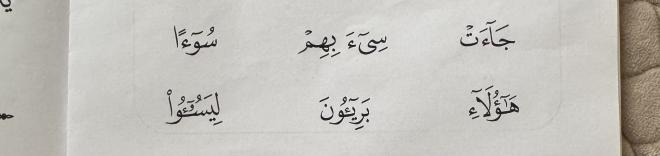 جَآءَتْ سِيٓءَ بِهِمْ سُوٓءًا
هَٰٓؤُلَآءِ بَرِيٓـُٔونَ لِيَسُـُٔوٓا۟